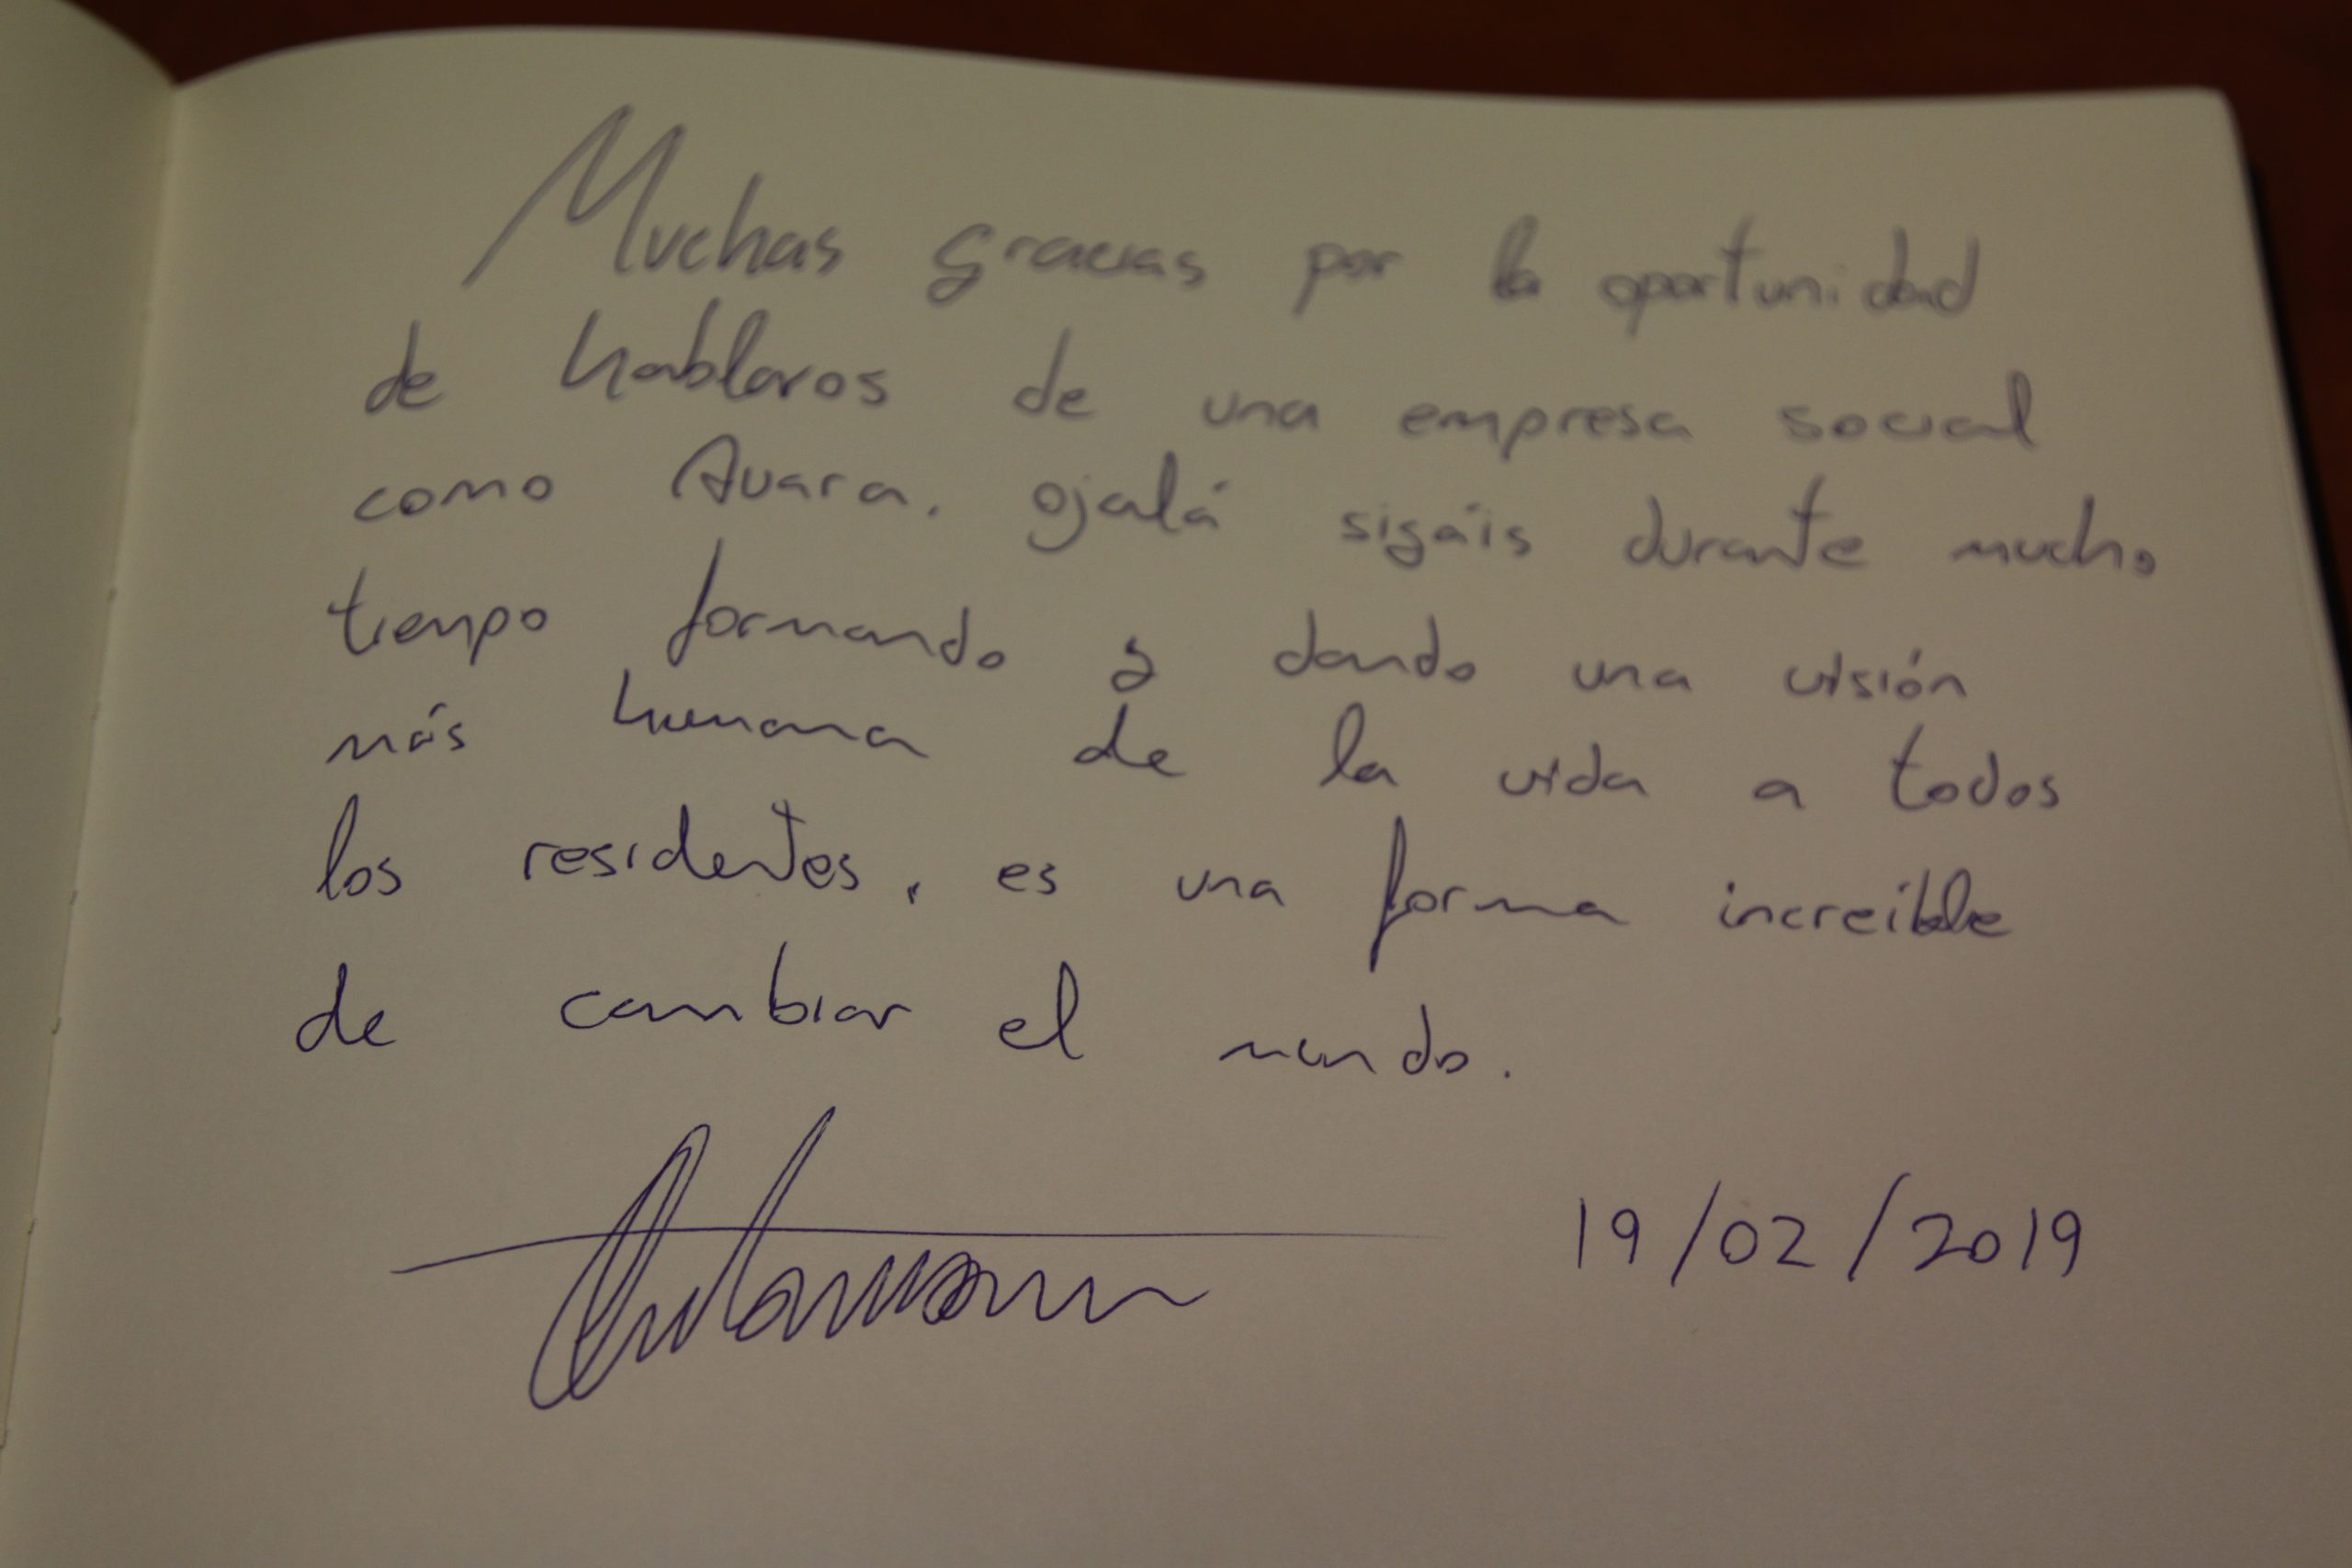 Muchas gracias por la oportunidad
de hablaros de una empresa social
como Auara. Ojalá sigáis durante mucho
tiempo formando y dando una visión
más humana de la vida a todos
los residentes, es una forma increíble
de cambiar el mundo.
19/02/2019